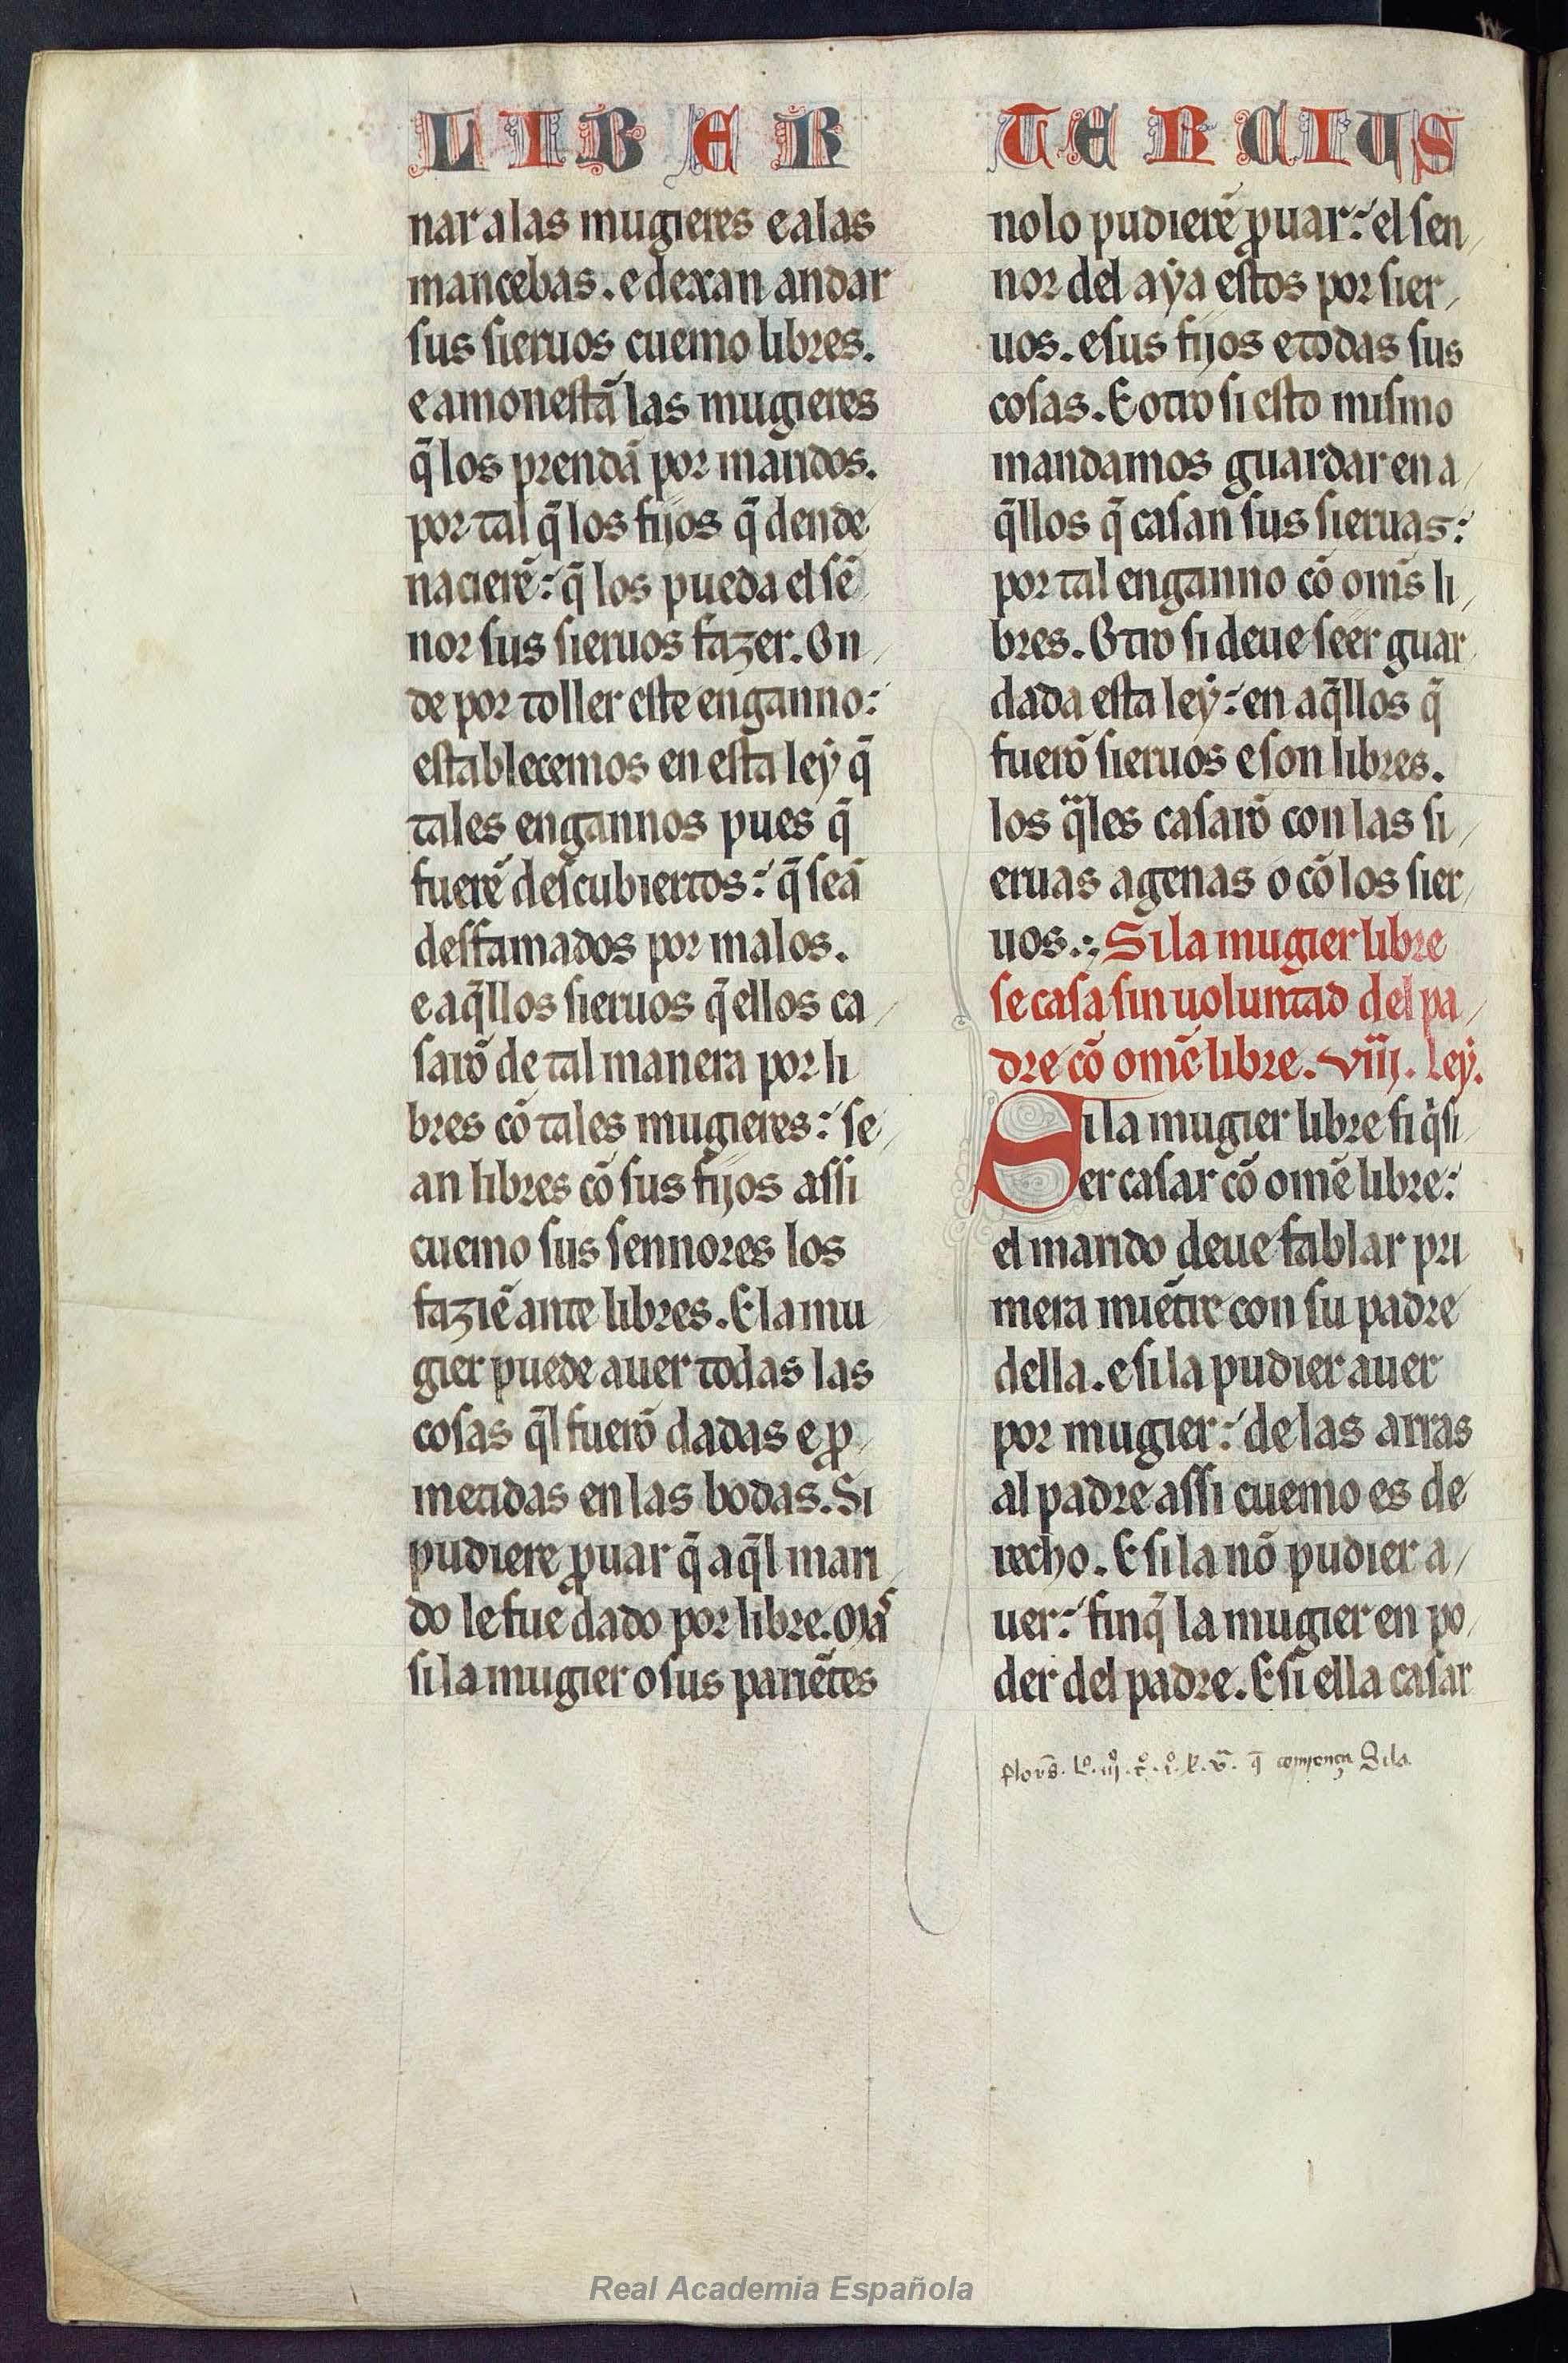 LIBER
nar alas mugieres e alas
mancebas. e dexan andar
sus sieruos cuemo libres.
e amonestã las mugieres
q̃ los prendã por maridos.
por tal q̃ los fijos q̃ dende
nacierẽ: q̃ los pueda el sẽ
nor sus sieruos fazer. On
de por toller este enganno:
establecemos en esta leẏ q̃
tales engannos pues q̃
fuerẽ descubiertos: q̃ seã
desfamados por malos.
e aq̃llos sieruos q̃ ellos ca
sarõ de tal manera por li
bres cõ tales mugieres: se
an libres cõ sus fijos assi
cuemo sus sennores los
faziẽ ante libres. E la mu
gier puede auer todas las
cosas q̃l fuerõ dadas e ꝓ
metidas en las bodas. Si
pudiere ꝓuar q̃ aq̃l mari
do le fue dado por libre.
si la mugier o sus pariẽtes
TERCIUS
no lo pudierẽ ꝓuar: el sen
nor del aẏa estos por sier
uos. e sus fijos e todas sus
cosas. E otro si esto mismo
mandamos guardar en a
q̃llos q̃ casan sus sieruas:
por tal enganno cõ om̃s li
bres. Otro si deue seer guar
dada esta leẏ: en aq̃llos q̃
fuerõ sieruos e son libres.
los q̃les casarõ con las si
eruas agenas o cõ los sier
uos. Si la mugier libre
se casa sin uoluntad del pa
dre cõ omẽ libre. viij. leẏ.
Si la mugier libre si q̃si
er casar cõ omẽ libre:
el marido deue fablar pri
mera miẽtre con su padre
della. e si la pudier auer
por mugier: de las arras
al padre assi cuemo es de
recho. E si la nõ pudier a
uer: finq̃ la mugier en po
der del padre. E si ella casar
q̃ comiença Si la
Real Academia Española